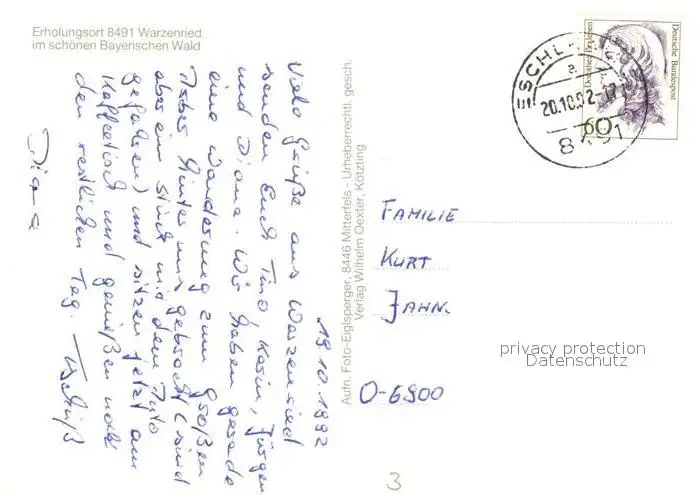 Erholungsort 8491 Warzenried
im schönen Bayerischen Wald
19.10.1992
Viele Grüße aus Warzenried
senden Euch Tino, Karin, Jürgen
und Diana. Wir haben gerade
eine Wanderung zum großen
hinter uns gebracht (sind
aber ein Stück mit dem Auto
gefahren) und sitzen jetzt am
Kaffeetisch und genießen noch
den restlichen Tag. Tschüß
Diana
Aufn. Foto-Eiglsperger, 8446 Mitterfels - Urheberrechtl. gesch.
Verlag Wilhelm Oexter, Kötzting
ESCHL
a
20.10.92-17
8491
Deutsche Bundespost
60
FAMILIE
KURT
JAHN.
O-6900
privacy protection
Datenschutz
3